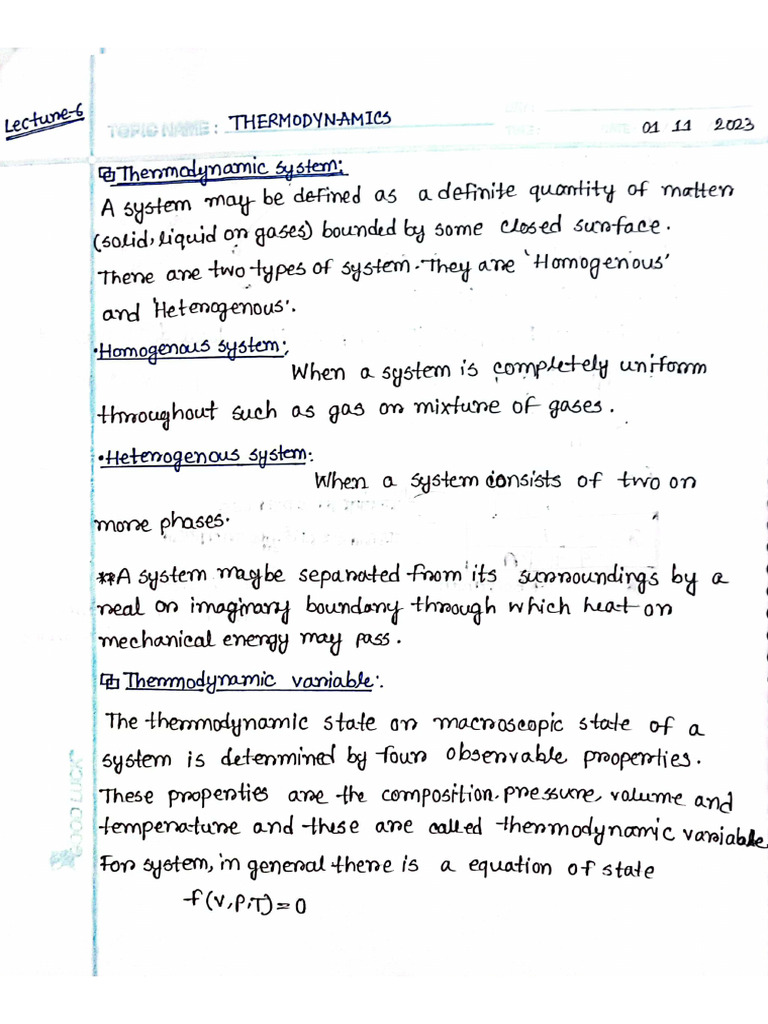 Lecture-6
TOPIC NAME : THERMODYNAMICS
01 11 2023
Thermodynamic system:
A system may be defined as a definite quantity of matter
(solid, liquid or gases) bounded by some closed surface.
There are two types of system. They are 'Homogenious'
and 'Heterogenous'.
•Homogenous system:
When a system is completely uniform
throughout such as gas or mixture of gases.
•Heterogenous system:
When a system consists of two or
more phases.
**A system maybe separated from its surroundings by a
real or imaginary boundary through which heat or
mechanical energy may pass.
Thermodynamic variable:
The thermodynamic state or macroscopic state of a
system is determined by four observable properties.
These properties are the composition, pressure, volume and
temperature and these are called thermodynamic variable.
For system, in general there is a equation of state
f(V,P,T)=0
GOOD LUCK